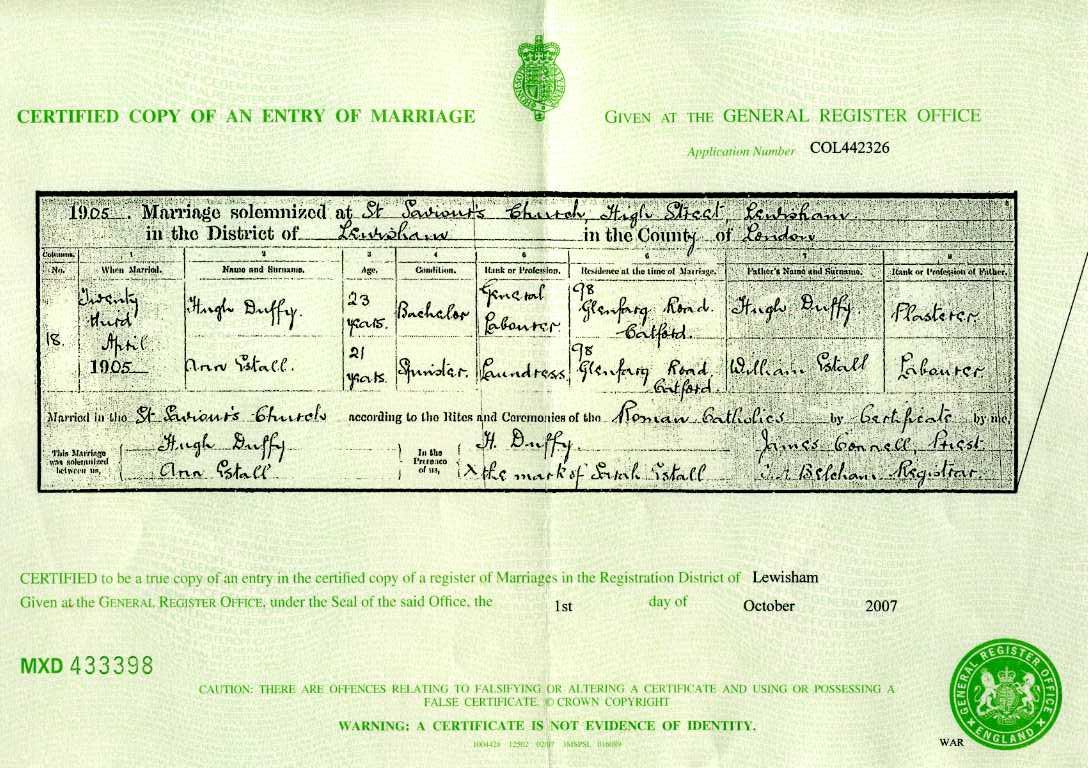 CERTIFIED COPY OF AN ENTRY OF MARRIAGE
GIVEN AT THE GENERAL REGISTER OFFICE
Application Number COL442326
1905. Marriage solemnized at St Saviour's Church, High Street, Lewisham
in the District of Lewisham in the County of London
Columns. 1 2 3 4 5 6 7 8
No. When Married. Name and Surname. Age. Condition. Rank or Profession. Residence at the time of Marriage. Father's Name and Surname. Rank or Profession of Father.
18. Twenty third April 1905
Hugh Duffy. 23 years. Bachelor General Labourer 98 Glenfarg Road. Catford. Hugh Duffy. Plasterer
Ann Estall. 21 years. Spinster. Laundress 98 Glenfarg Road. Catford. William Estall Labourer
Married in the St Saviour's Church according to the Rites and Ceremonies of the Roman Catholics by Certificate by me,
This Marriage was solemnized between us, Hugh Duffy Ann Estall
In the Presence of us, H. Duffy. X the mark of Sarah Estall
James Connell, Priest
Belcham Registrar
CERTIFIED to be a true copy of an entry in the certified copy of a register of Marriages in the Registration District of Lewisham
Given at the GENERAL REGISTER OFFICE, under the Seal of the said Office, the 1st day of October 2007
MXD 433398
CAUTION: THERE ARE OFFENCES RELATING TO FALSIFYING OR ALTERING A CERTIFICATE AND USING OR POSSESSING A
FALSE CERTIFICATE. © CROWN COPYRIGHT
WARNING: A CERTIFICATE IS NOT EVIDENCE OF IDENTITY.
GENERAL REGISTER OFFICE
ENGLAND
WAR